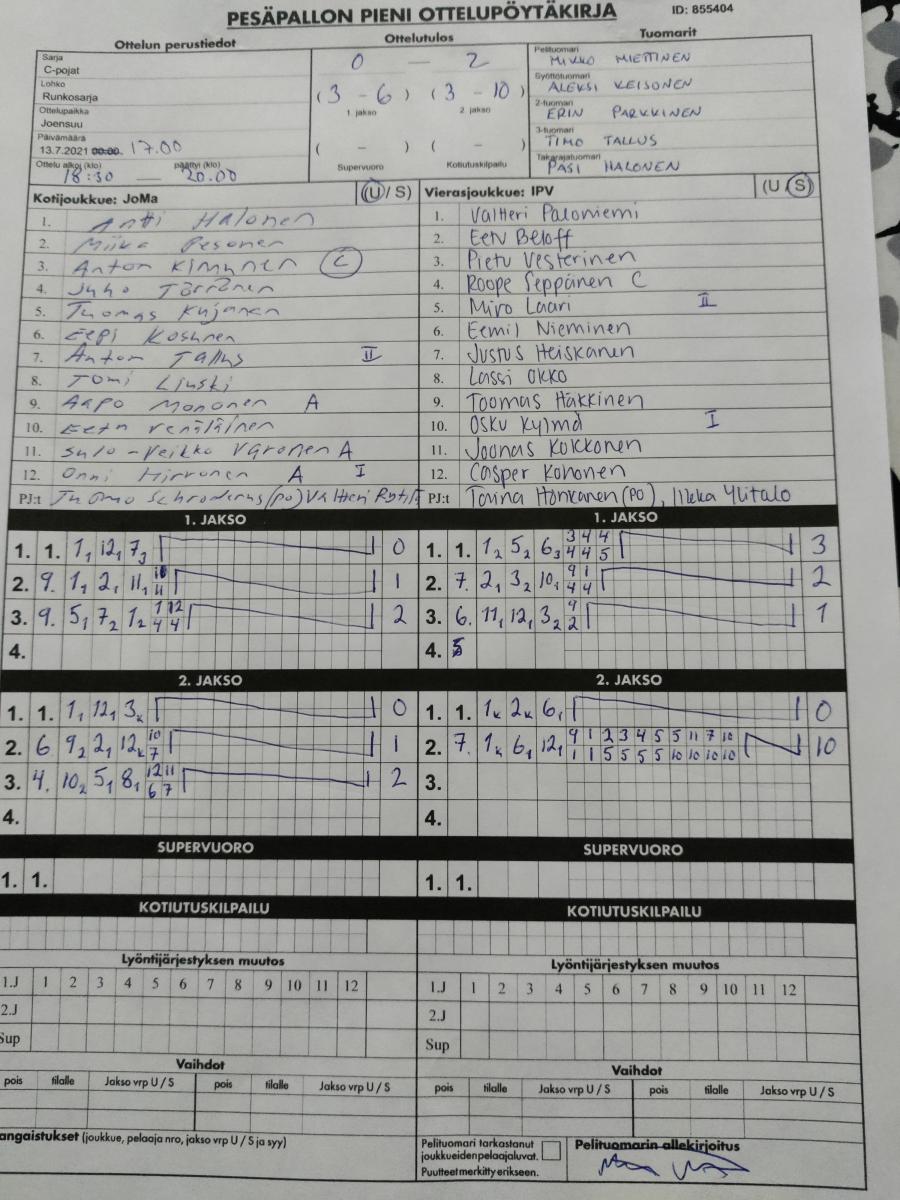 PESÄPALLON PIENI OTTELUPÖYTÄKIRJA ID: 855404
Ottelun perustiedot Ottelutulos Tuomarit
Sarja
C-pojat
Lohko
Runkosarja
Ottelupaikka
Joensuu
Päivämäärä
13.7.2021 00.00 17.00
Ottelu alkoi (klo) päättyi (klo)
18:30 — 20.00
0 — 2
(3 - 6) (3 - 10)
1. jakso 2. jakso
( - ) ( - )
Supervuoro Kotiutuskilpailu
Pelituomari
MIKKO MIETTINEN
Syöttötuomari
ALEKSI KEISONEN
2-tuomari
ERIN PARKKINEN
3-tuomari
TIMO TALLUS
Takarajatuomari
PASI HALONEN
Kotijoukkue: JoMa (U / S)
1. Antti Halonen
2. Miika Pesonen
3. Anton Kinnunen C
4. Juho Törrönen
5. Thomas Kujanen
6. Eepi
7. Anton Tallus II
8. Tomi
9. Aapo Mononen A
10. Eetu Venäläinen
11. Sulo-Veikko Varonen A
12. Onni Hirvonen A I
PJ:t Tuomo Schroderus (PO) Valtteri
Vierasjoukkue: IPV (U / S)
1. Valtteri Paloniemi
2. Eetu Beloff
3. Pietu Vesterinen
4. Roope Seppänen C
5. Miro Laari II
6. Eemil Nieminen
7. Justus Heiskanen
8. Lassi Okko
9. Toomas Häkkinen
10. Osku Kylmä I
11. Joonas Kolkkonen
12. Casper Kononen
PJ:t Taina Honkanen (PO), Ilkka Ylitalo
1. JAKSO
1. 1. 1₁ 12₁ 7₃ 0
2. 9. 1₁ 2₁ 11₁ 10 11 1
3. 9. 5₁ 7₂ 1₂ 1 12 4 4 2
4.
1. JAKSO
1. 1. 1₂ 5₂ 6₃ 3 4 4 4 4 5 3
2. 7. 2₁ 3₂ 10₁ 9 1 4 4 2
3. 6. 11₁ 12₁ 3₂ 9 2 1
4. 5
2. JAKSO
1. 1. 1₁ 12₁ 3ₖ 0
2. 6. 9₂ 2₁ 12ₖ 10 7 1
3. 4. 10₂ 5₁ 8₁ 12 11 6 7 2
4.
2. JAKSO
1. 1. 1ₖ 2ₖ 6₁ 0
2. 7. 1ₖ 6₁ 12₁ 9 1 2 3 4 5 5 11 7 10 1 1 5 5 5 5 10 10 10 10 10
3.
4.
SUPERVUORO
1. 1.
SUPERVUORO
1. 1.
KOTIUTUSKILPAILU
KOTIUTUSKILPAILU
Lyöntijärjestyksen muutos
1.J 1 2 3 4 5 6 7 8 9 10 11 12
2.J
Sup
Vaihdot
pois tilalle Jakso vrp U / S pois tilalle Jakso vrp U / S
Lyöntijärjestyksen muutos
1.J 1 2 3 4 5 6 7 8 9 10 11 12
2.J
Sup
Vaihdot
pois tilalle Jakso vrp U / S pois tilalle Jakso vrp U / S
angaistukset (joukkue, pelaaja nro, jakso vrp U / S ja syy)
Pelituomari tarkastanut
joukkueiden pelaajaluvat.
Puutteet merkitty erikseen.
Pelituomarin allekirjoitus